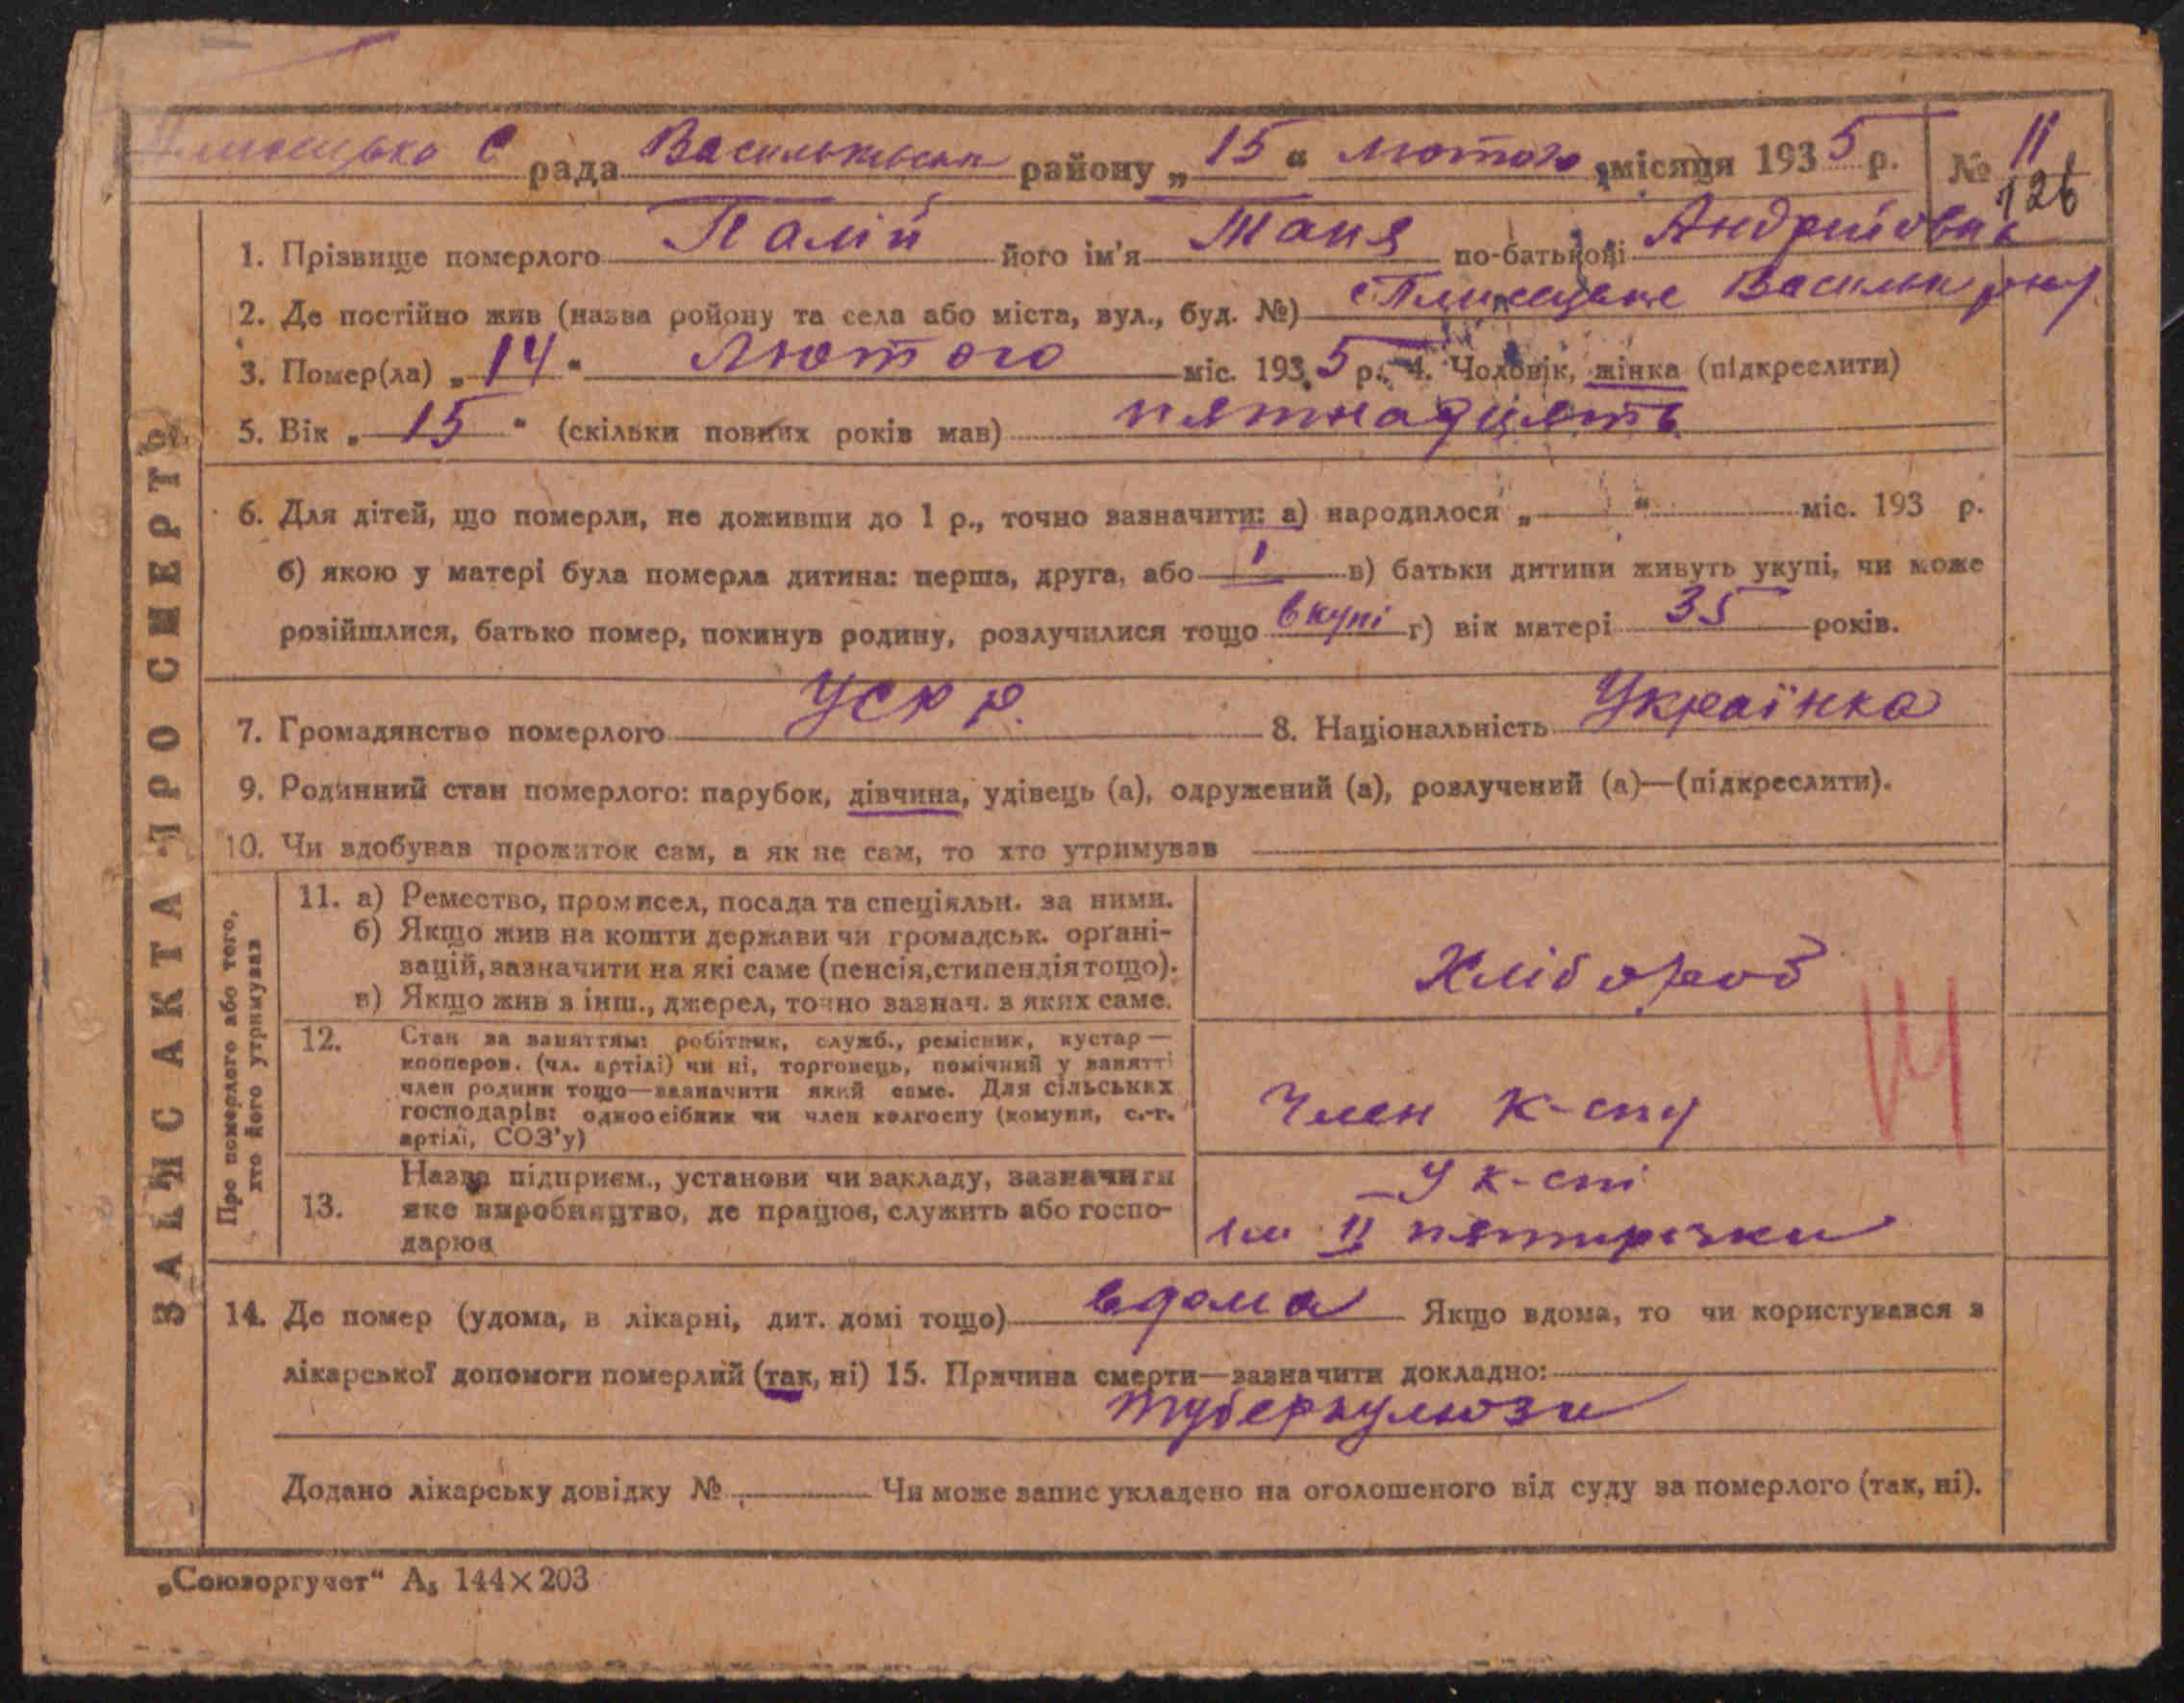 С рада Васильківськ району „15“ лютого місяця 1935 р. № 11
126
1. Прізвище померлого Палій його ім'я Таня по-батькові Андрийовна
2. Де постійно жив (назва ройону та села або міста, вул., буд. №) с Васильк р-ну
3. Помер(ла) „14“ Лютого міс. 1935 р. 4. Чоловік, жінка (підкреслити)
5. Вік „15“ (скільки повних років мав) пятнадцять
6. Для дітей, що померли, не доживши до 1 р., точно зазначити: а) народилося „ “ міс. 193 р.
б) якою у матері була померла дитина: перша, друга, або 1 в) батьки дитини живуть укупі, чи може
розійшлися, батько помер, покинув родину, розлучилися тощо вкупі г) вік матері 35 років.
7. Громадянство померлого УСРР. 8. Національність Українка
9. Родинний стан померлого: парубок, дівчина, удівець (а), одружений (а), розлучений (а)—(підкреслити).
10. Чи здобував прожиток сам, а як не сам, то хто утримував
ЗАПИС АКТА ПРО СМЕРТЬ
Про померлого або того, хто його утримував
11. а) Ремество, промисел, посада та спеціяльн. за ними.
б) Якщо жив на кошти держави чи громадськ. органі-
зацій, зазначити на які саме (пенсія, стипендія тощо).
в) Якщо жив з інш., джерел, точно зазнач. з яких саме.
Хлібороб
12. Стан за заняттям: робітник, служб., ремісник, кустар—
кооперов. (чл. артілі) чи ні, торговець, помічний у занятті
член родини тощо—зазначити який саме. Для сільських
господарів: одноосібник чи член колгоспу (комуни, с.-г.
артілі, СОЗ'у)
Член К-спу
13. Назва підприєм., установи чи закладу, зазначити
яке виробництво, де працює, служить або госпо-
дарює
У к-спі
ІІ пятирічки
14. Де помер (удома, в лікарні, дит. домі тощо) вдома Якщо вдома, то чи користувався з
лікарської допомоги померлий (так, ні) 15. Причина смерти—зазначити докладно:
туберкульози
Додано лікарську довідку № Чи може запис укладено на оголошеного від суду за померлого (так, ні).
„Союзоргучет“ А₅ 144×203